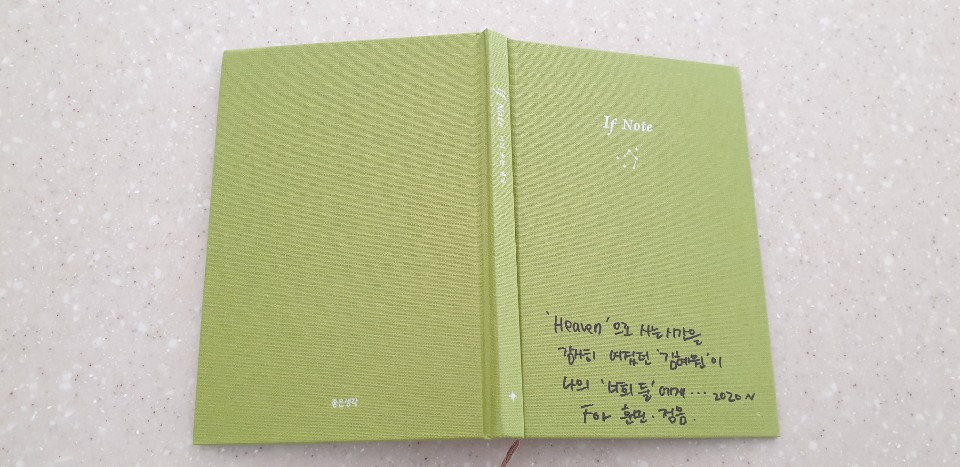 좋은생각
If Note
If Note
'Heaven'으로 사는 시간을
감사히 여겼던 '김혜원'이
나의 '너희 둘'에게... 2020~
For 훈민.정음.